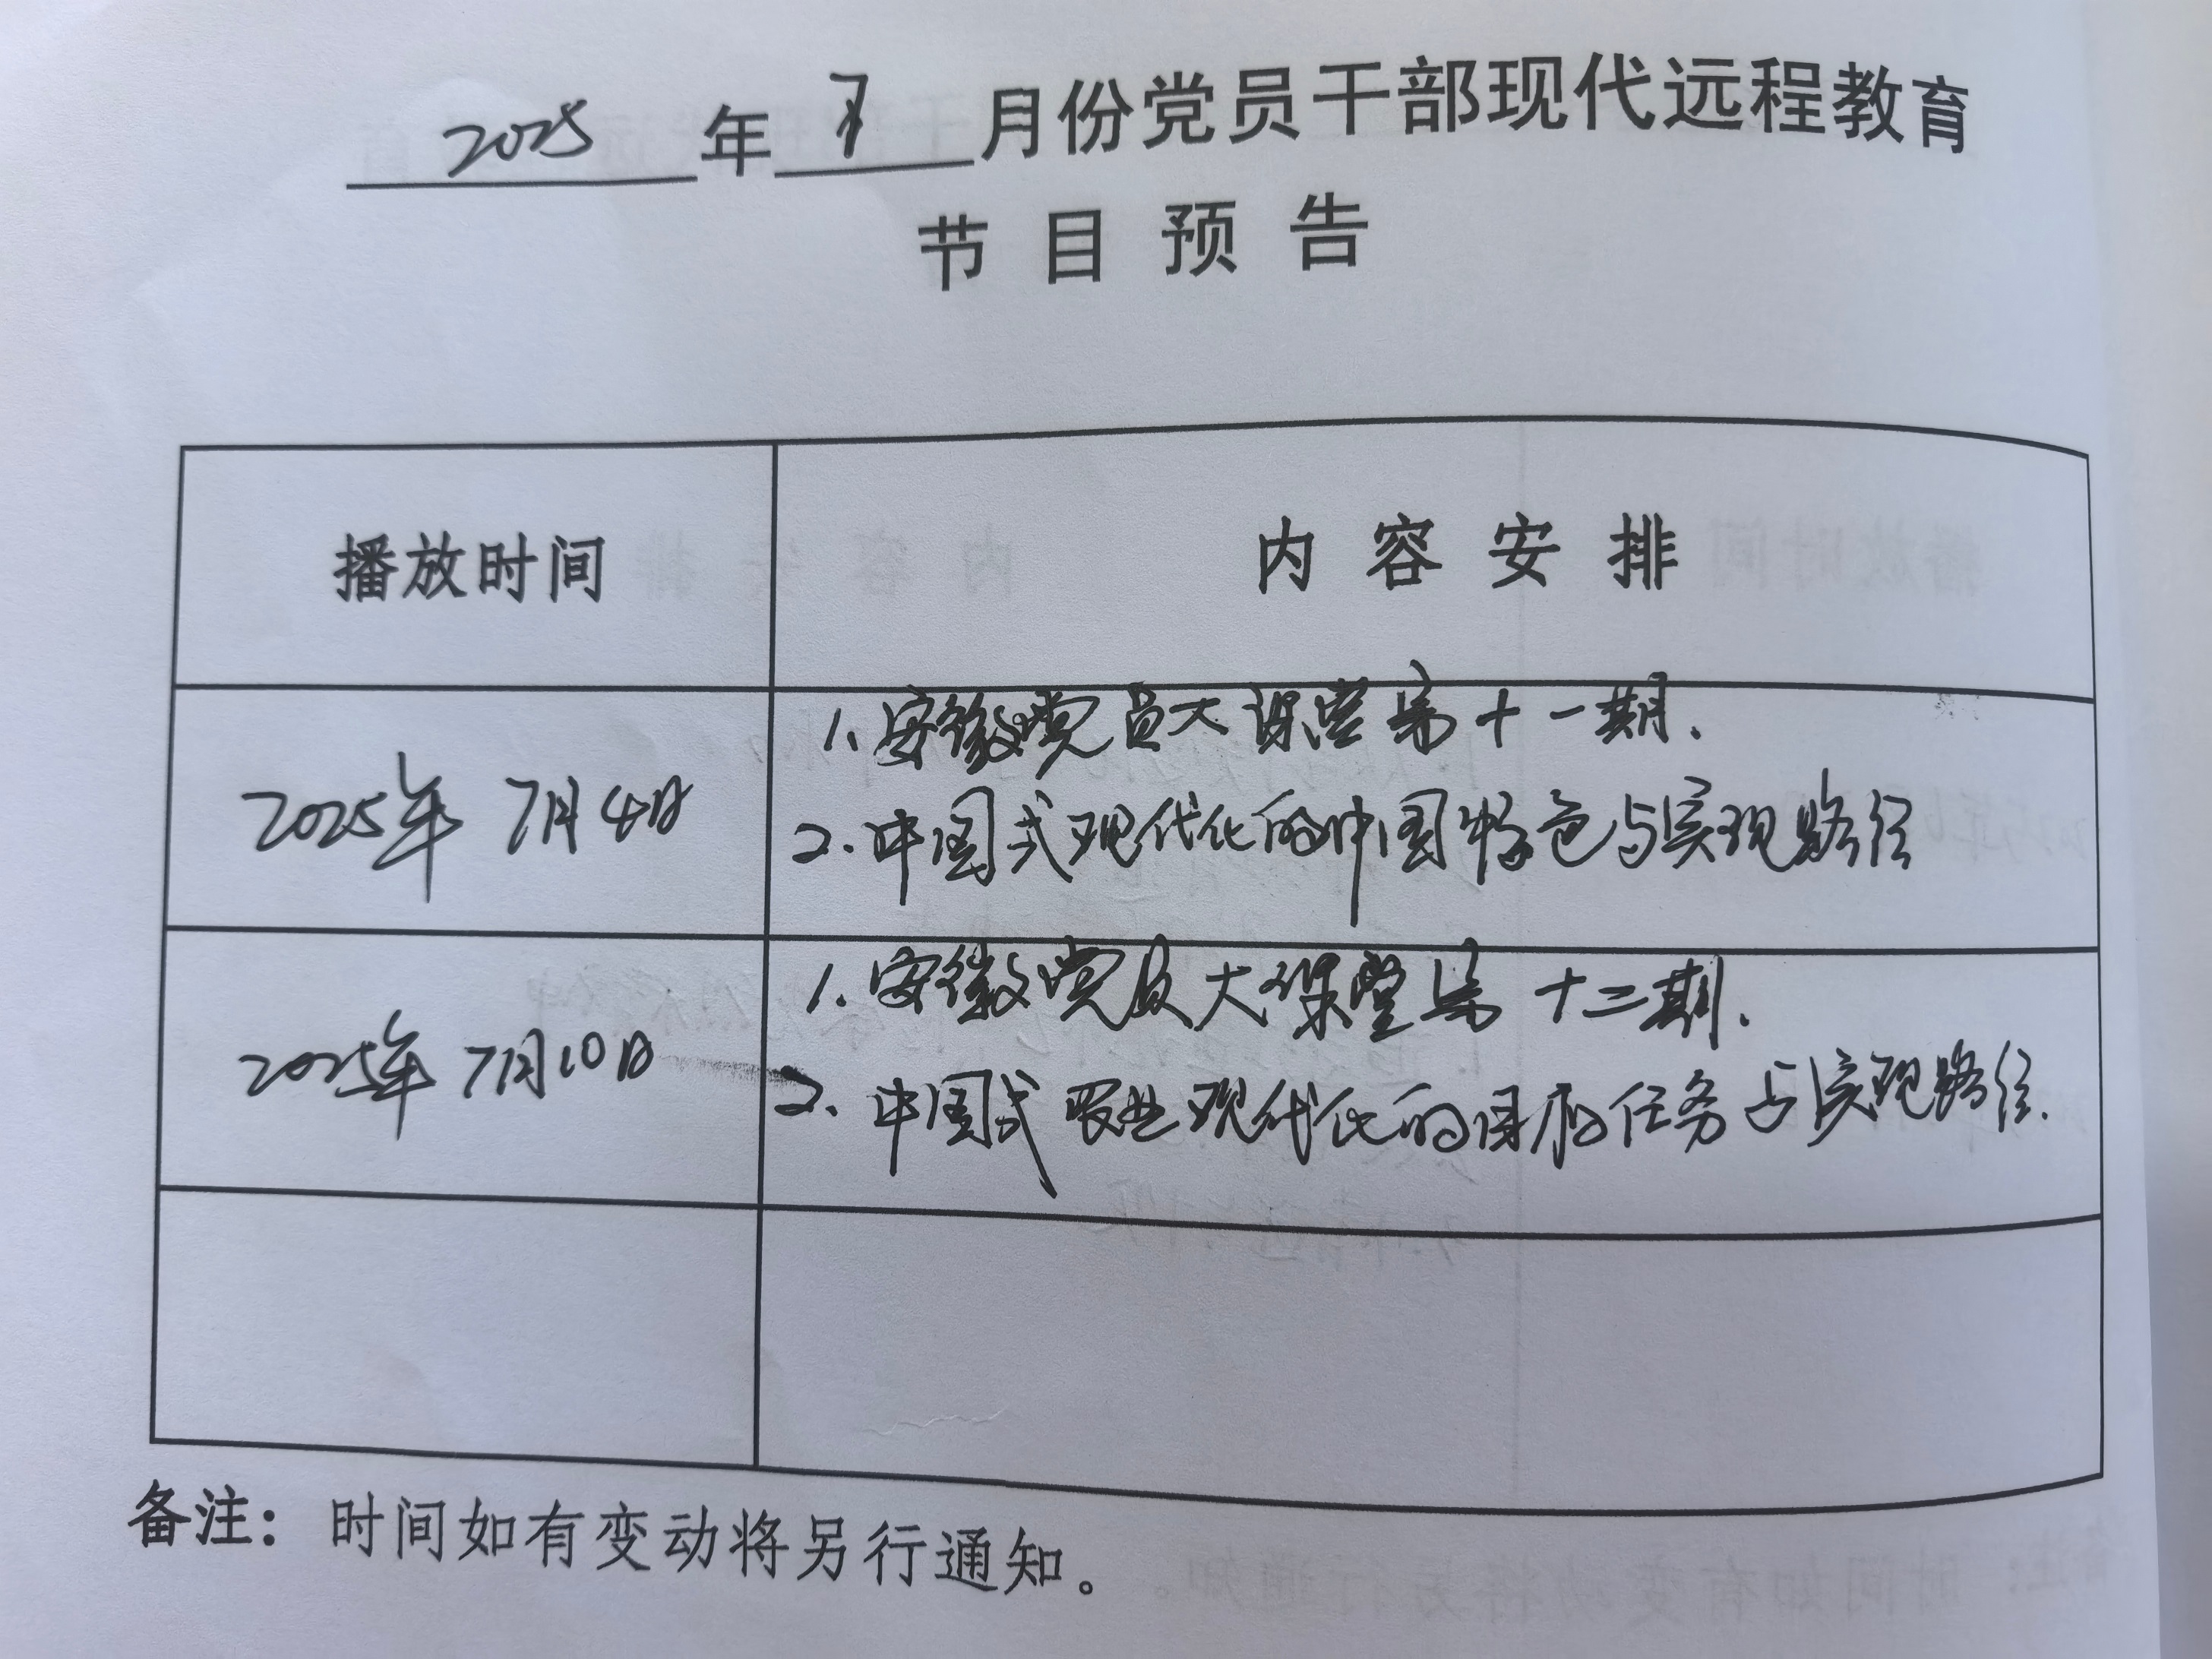 2025年7月份党员干部现代远程教育
节目预告
播放时间
内容安排
2025年7月4日
1.安徽党员大课堂第十一期.
2.中国式现代化的中国特色与实现路径
2025年7月10日
1.安徽党员大课堂第十二期.
2.中国式农业现代化的目标任务与实现路径.
备注：时间如有变动将另行通知。